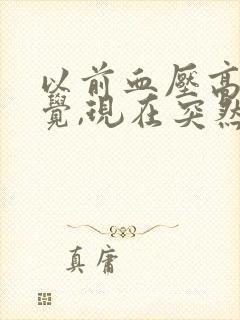 以前血壓高
覺,現在突然
真庸